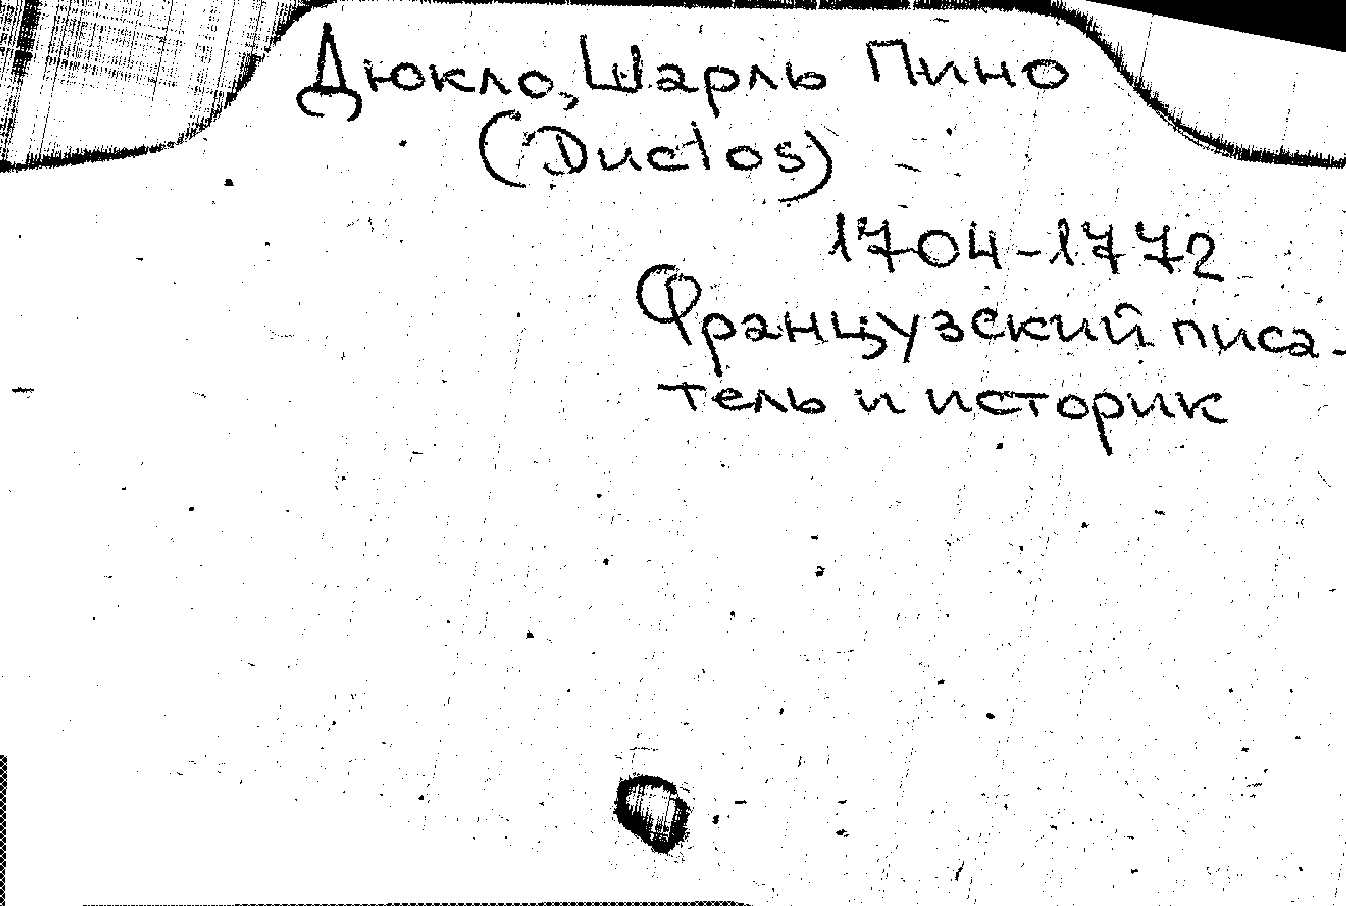 Дюкло, Шарль Пино
(Duclos)
1704-1772
Французский писа-
тель и историк